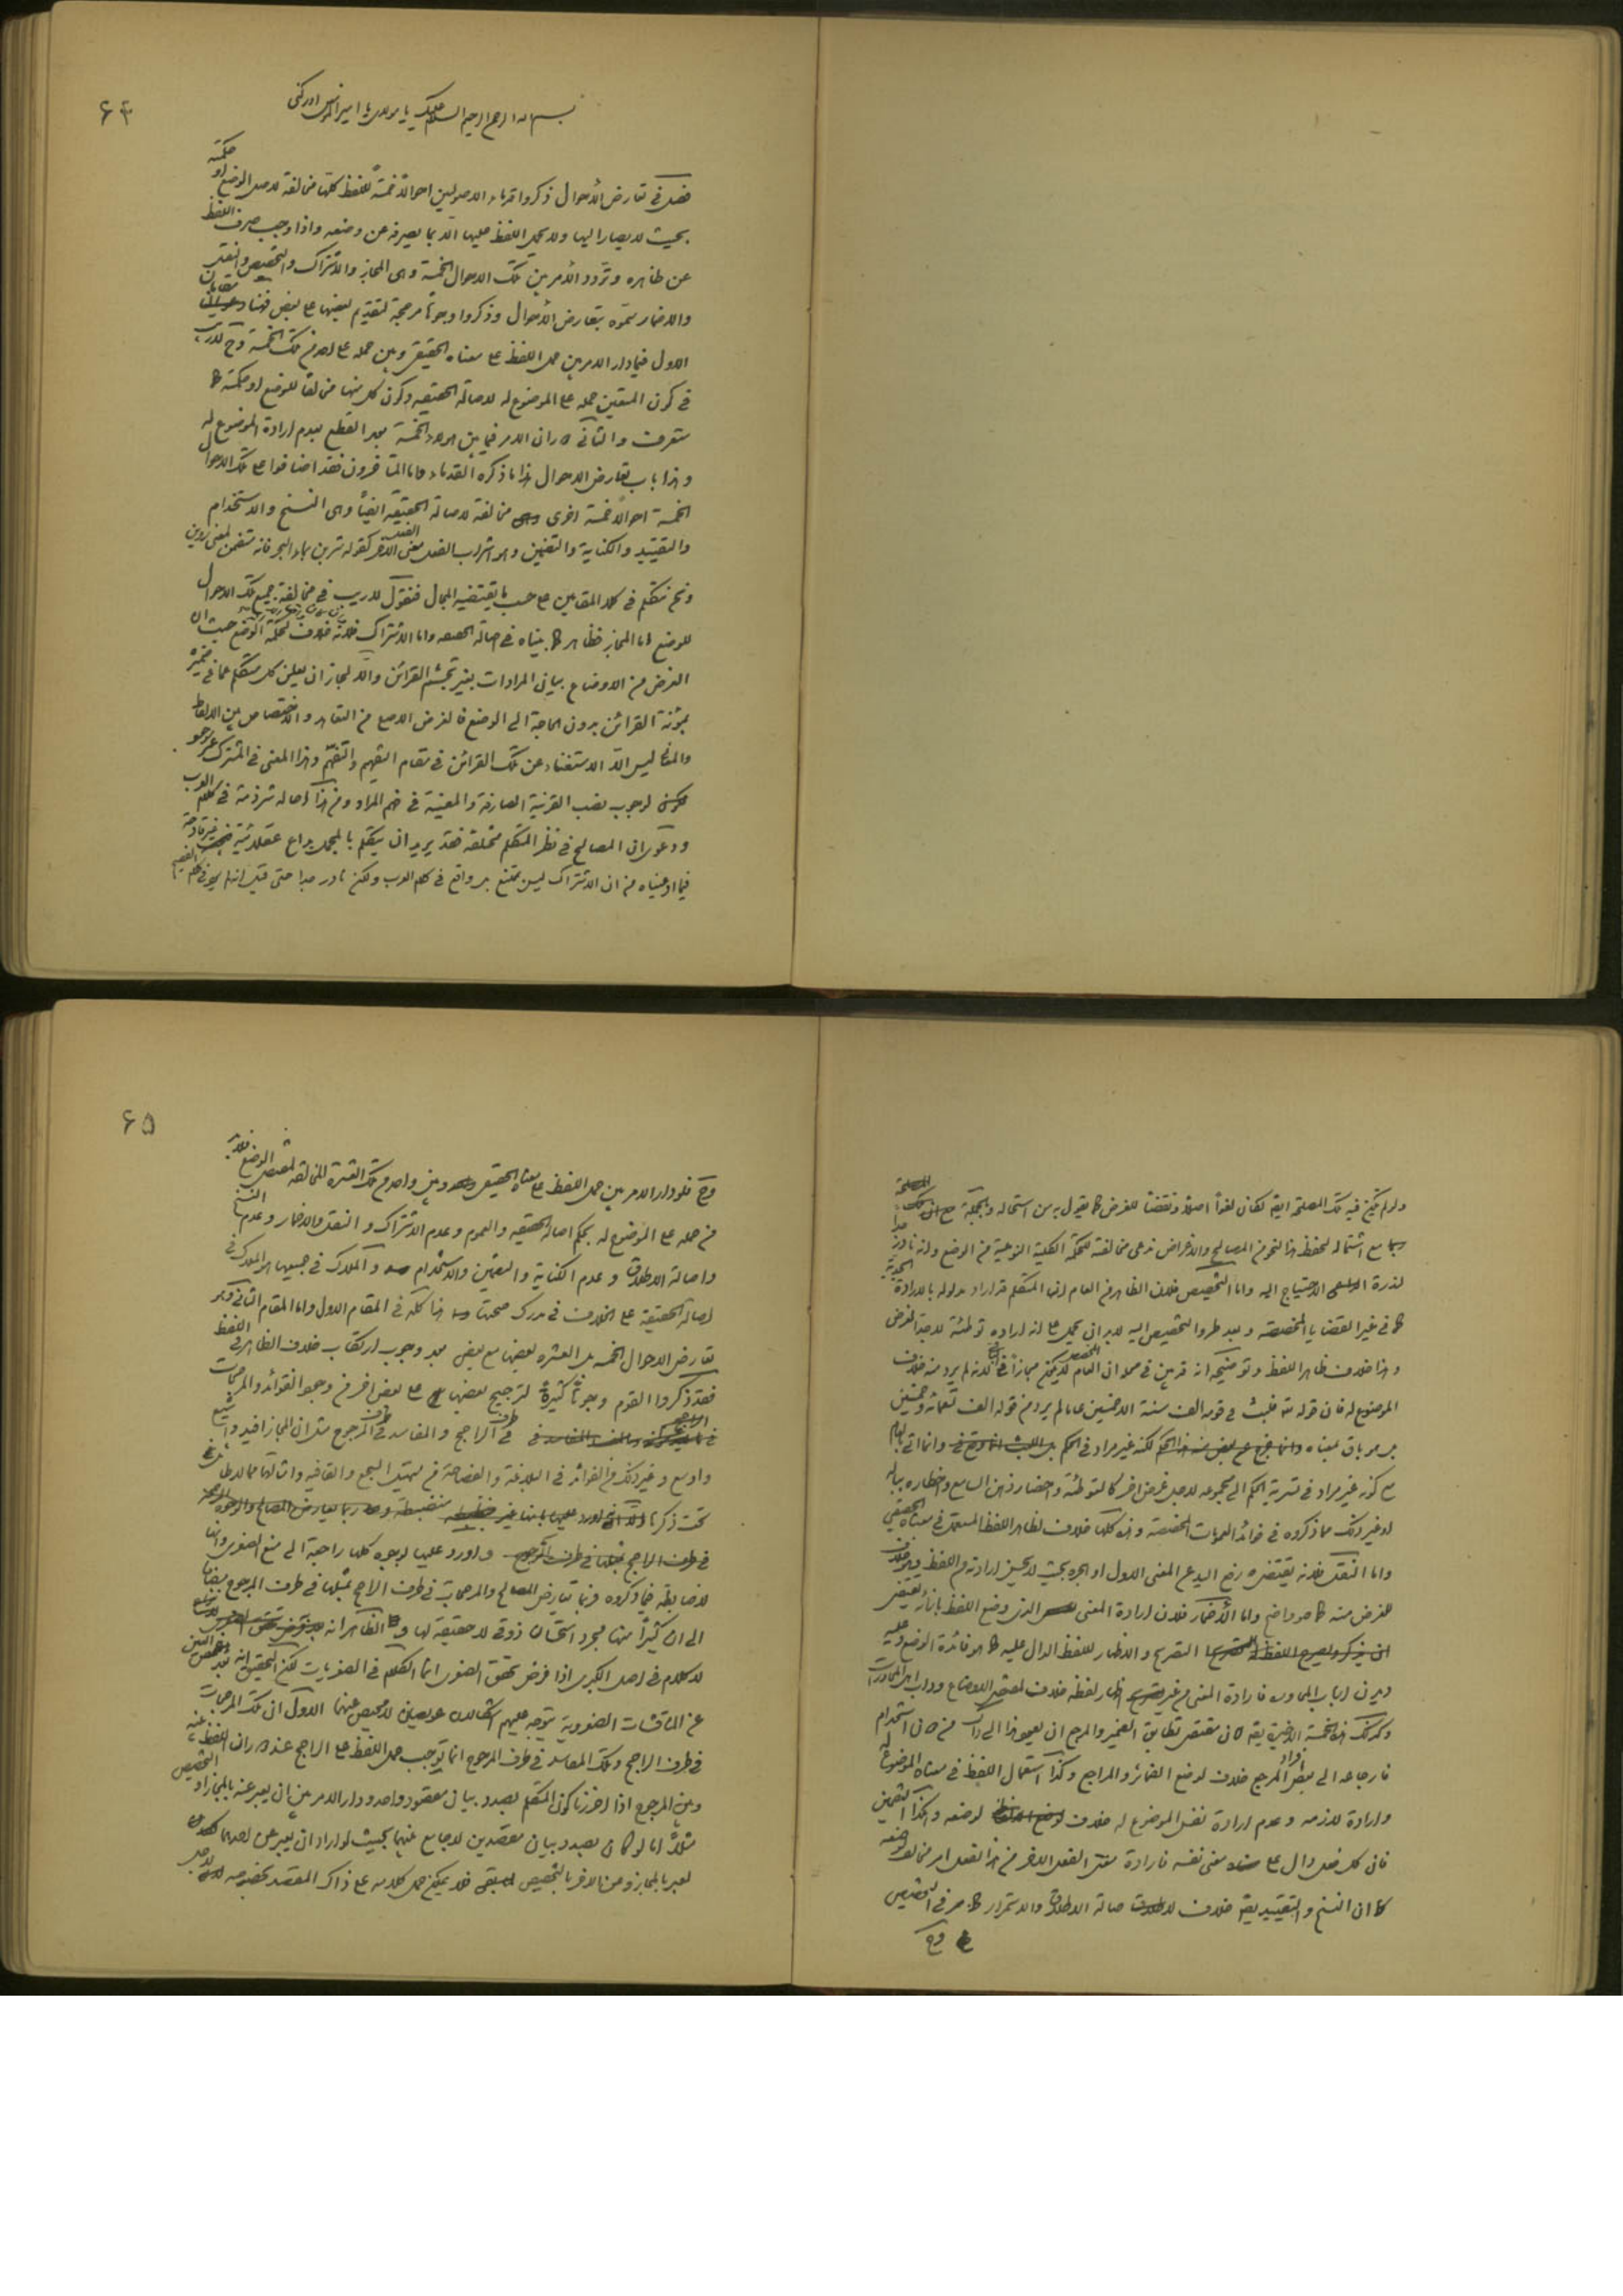 ۶۴
بسم الله الرحمن الرحيم السلام عليك يا مولاي يا امير المؤمنين ادركني
فصل في تعارض الأحوال ذكروا قدماء الاصوليين احوالاً خمسة للفظ كلها مخالفة لاصل الوضع او حكمته
بحيث لا يصار اليها ولا يحمل اللفظ عليها الّا بما يصرفه عن وضعه واذا وجب صرف اللفظ
عن ظاهره وتردد الأمر بين تلك الاحوال الخمسة وهى المجاز والاشتراك والتخصيص والنقل
والاضمار سمّوه بتعارض الأحوال وذكروا وجوهاً مرجحة لتقديم بعضها على بعض فهنا مقامان
الاول فيما دار الامر بين حمل اللفظ على معناه الحقيقى وبين حمله على احد من تلك الخمسة وح لا ريب
في كون المتعين حمله على الموضوع له لاصالة الحقيقة وكون كل منها مخالفاً للوضع او حكمته كما
ستعرف والثانى دوران الامر فيما بين هولاء الخمسة بعد القطع بعدم ارادة الموضوع له
وهذا باب تعارض الاحوال هذا ما ذكره القدماء واما المتاخرون فقد اضافوا على تلك الاحوال
الخمسة احوالاً خمسة اخرى مخالفة لاصالة الحقيقة ايضاً وهى النسخ والاستخدام
والتقييد والكناية والتضمين وهو اشراب الفعل معنى الفعل الآخر كقوله شربن بماء البحر فانه متضمن لمعنى روين
ونحن نتكلم في كلا المقامين على حسب ما يقتضيه المجال فنقول لا ريب في مخالفة جميع تلك الاحوال
للوضع اما المجاز فظاهر كما بيناه في اصالة الحقيقه واما الاشتراك فلانه خلاف لحكمة الوضع حيث ان
الغرض من الاوضاع بيان المرادات بغير تجشم القرائن والّا لجاز ان يعلن كل متكلم عما في ضميره
بمؤنة القرائن بدون الحاجة الى الوضع فالغرض الاصلى من التعاهد والاختصاص بين الالفاظ
والمعانى ليس الّا الاستغناء عن تلك القرائن في مقام التفهيم والتفهّم وهذا المعنى في المشترك غير موجود
لوجوب نصب القرنية الصارفة والمعينة في فهم المراد ومن هنا احاله شرذمة في كلام العرب
ودعوى ان المصالح في نظر المتكلم مختلفة فقد يريد ان يتكلم بالمجمل بداع عقلائية غير قادحة
فيما ادعيناه من ان الاشتراك ليس بممتنع بل واقع في كلام العرب ولكن نادر جدا حتى قيل انه لم يقع في كلام الفصيح
ولو لم يكن فيه تلك المصلحة ايضاً لكان لغواً اصلاً ونقضاً للغرض كما يقول به من استحاله وبالجملة مع تلك المصلحة
مع اشتماله لحفظ هذا النحو من المصالح والاغراض ندعى مخالفته للحكمة الكلية النوعية من الوضع وانه نادر جداً
لندرة الاحتياج اليه واما التخصيص فخلاف الظاهر من العام لان المتكلم قد اراد مدلوله بالارادة الجدية
كما في غير القضايا المخصصة وبعد طرو التخصيص اليه لابد ان يحمل على انه اراده توطئة لا جداً لغرض
وهذا خلاف ظاهر اللفظ وتوضيحه انه قد بين في محله ان العام المخصص لا يكون مجازاً لانه لم يرد منه خلاف
الموضوع له فان قوله تعالى فلبث في قومه الف سنة الا خمسين عاما لم يرد من قوله الف تسعمأة وخمسين
بل هو باق بمعناه لكنه غير مراد في الحكم وانما اتى بالعام
مع كونه غير مراد في تسرية الحكم الى مجموعه لاجل غرض اخر كالتوطئة واحضار ذهن السامع واخطاره بباله
او غير ذلك مما ذكروه في فوائد العمومات المخصصة وهذه كلها خلاف لظاهر اللفظ المستعمل في معناه الحقيقى
واما النقل فلانه يقتضى رفع اليد عن المعنى الاول او هجره بحيث لا يحسن ارادته من اللفظ وهو خلاف
للغرض منه كما هو واضح واما الأضمار فلان ارادة المعنى الذى وضع اللفظ بازائه يقتضى
التصريح والاظهار للفظ الدال عليه كما هو فائدة الوضع وعليه
ديدن ارباب المحاورة فارادة المعنى من غير اظهار لفظه خلاف لمقتضى الاوضاع وداب اهل المحاورات
وكذلك هذه الخمسة الاخيرة بقية فان مقتضى تطابق الضمير والمرجع ان يعود هذا الى ذاك من دون استخدام
فارجاعه الى بعض افراد المرجع خلاف لوضع الضمائر والمراجع وكذا استعمال اللفظ في معناه الموضوع له
وارادة لازمه وعدم ارادة نفس الموضوع له خلاف لوضعه وهكذا التضمين
فان كل فعل دال على معنى نفسه فارادة معنى الفعل الاخر من هذا الفعل امر مخالف لوضعه
كما ان النسخ والتقييد بقية خلاف لاصالة الاطلاق والاستمرار كما مر في التخصيص
وح
۶۵
وح فلو دار الامر بين حمل اللفظ على معناه الحقيقى وبين واحد من تلك العشرة المخالفة لمقتضى الوضع فلابد
من حمله على الموضوع له بحكم اصالة الحقيقه والعموم وعدم الاشتراك والنقل والاضمار وعدم النسخ
واصالة الاطلاق وعدم الكناية والتضمين والاستخدام والملاك في جميعها هو الملاك في
اصالة الحقيقة على الخلاف في مدرك صحتها هذا كله في المقام الاول واما المقام الثانى وهو
تعارض الاحوال الخمسة بل العشره بعضها مع بعض بعد وجوب ارتكاب خلاف الظاهر في اللفظ
فقد ذكروا القوم وجوهاً كثيرةً لترجيح بعضها على بعض اخر من وجود الفوائد والمرجحات
في طرف الراجح والمفاسد في طرف المرجوح مثل ان المجاز افيد واشيع
واوسع وغير ذلك من الفوائد في البلاغة والفصاحة من تسهيل السجع والقافيه وامثالها مما لا طائل في
تحت ذكرها
واورد عليها بوجوه كلها راجعة الى منع الصغرى وانها
لا ضابطة فيما ذكروه فربما تتعارض المصالح والمرجحات في طرف الراجح بمثلها في طرف المرجوح مضافا
الى ان كثيراً منها مجرد استحسان ذوقى لا حقيقة لها والظاهر انه
لا كلام في اصل الكبرى اذا فرض تحقق الصغرى انما الكلام في الصغريات لكن التحقيق انه بعد غض العين
عن المناقشات الصغروية يتوجه عليهم اشكالان عويصان لا محيص عنهما الاول ان تلك المرجحات
في طرف الراجح وتلك المفاسد في طرف المرجوح انما توجب حمل اللفظ على الراجح عند دوران اللفظ بينه
وبين المرجوح اذا احرزنا كون المتكلم بصدد بيان مقصود واحد ودار الامر بين ان يعبر عنه بالمجاز او التخصيص
مثلاً اما لو كان بصدد بيان مقصدين لا جامع بينهما بحيث لو اراد ان يعبر عن احدهما
لعبر بالمجاز وعن الاخر بالتخصيص فلا يمكن حمل كلامه على ذاك المقصد بخصوصه لاجل